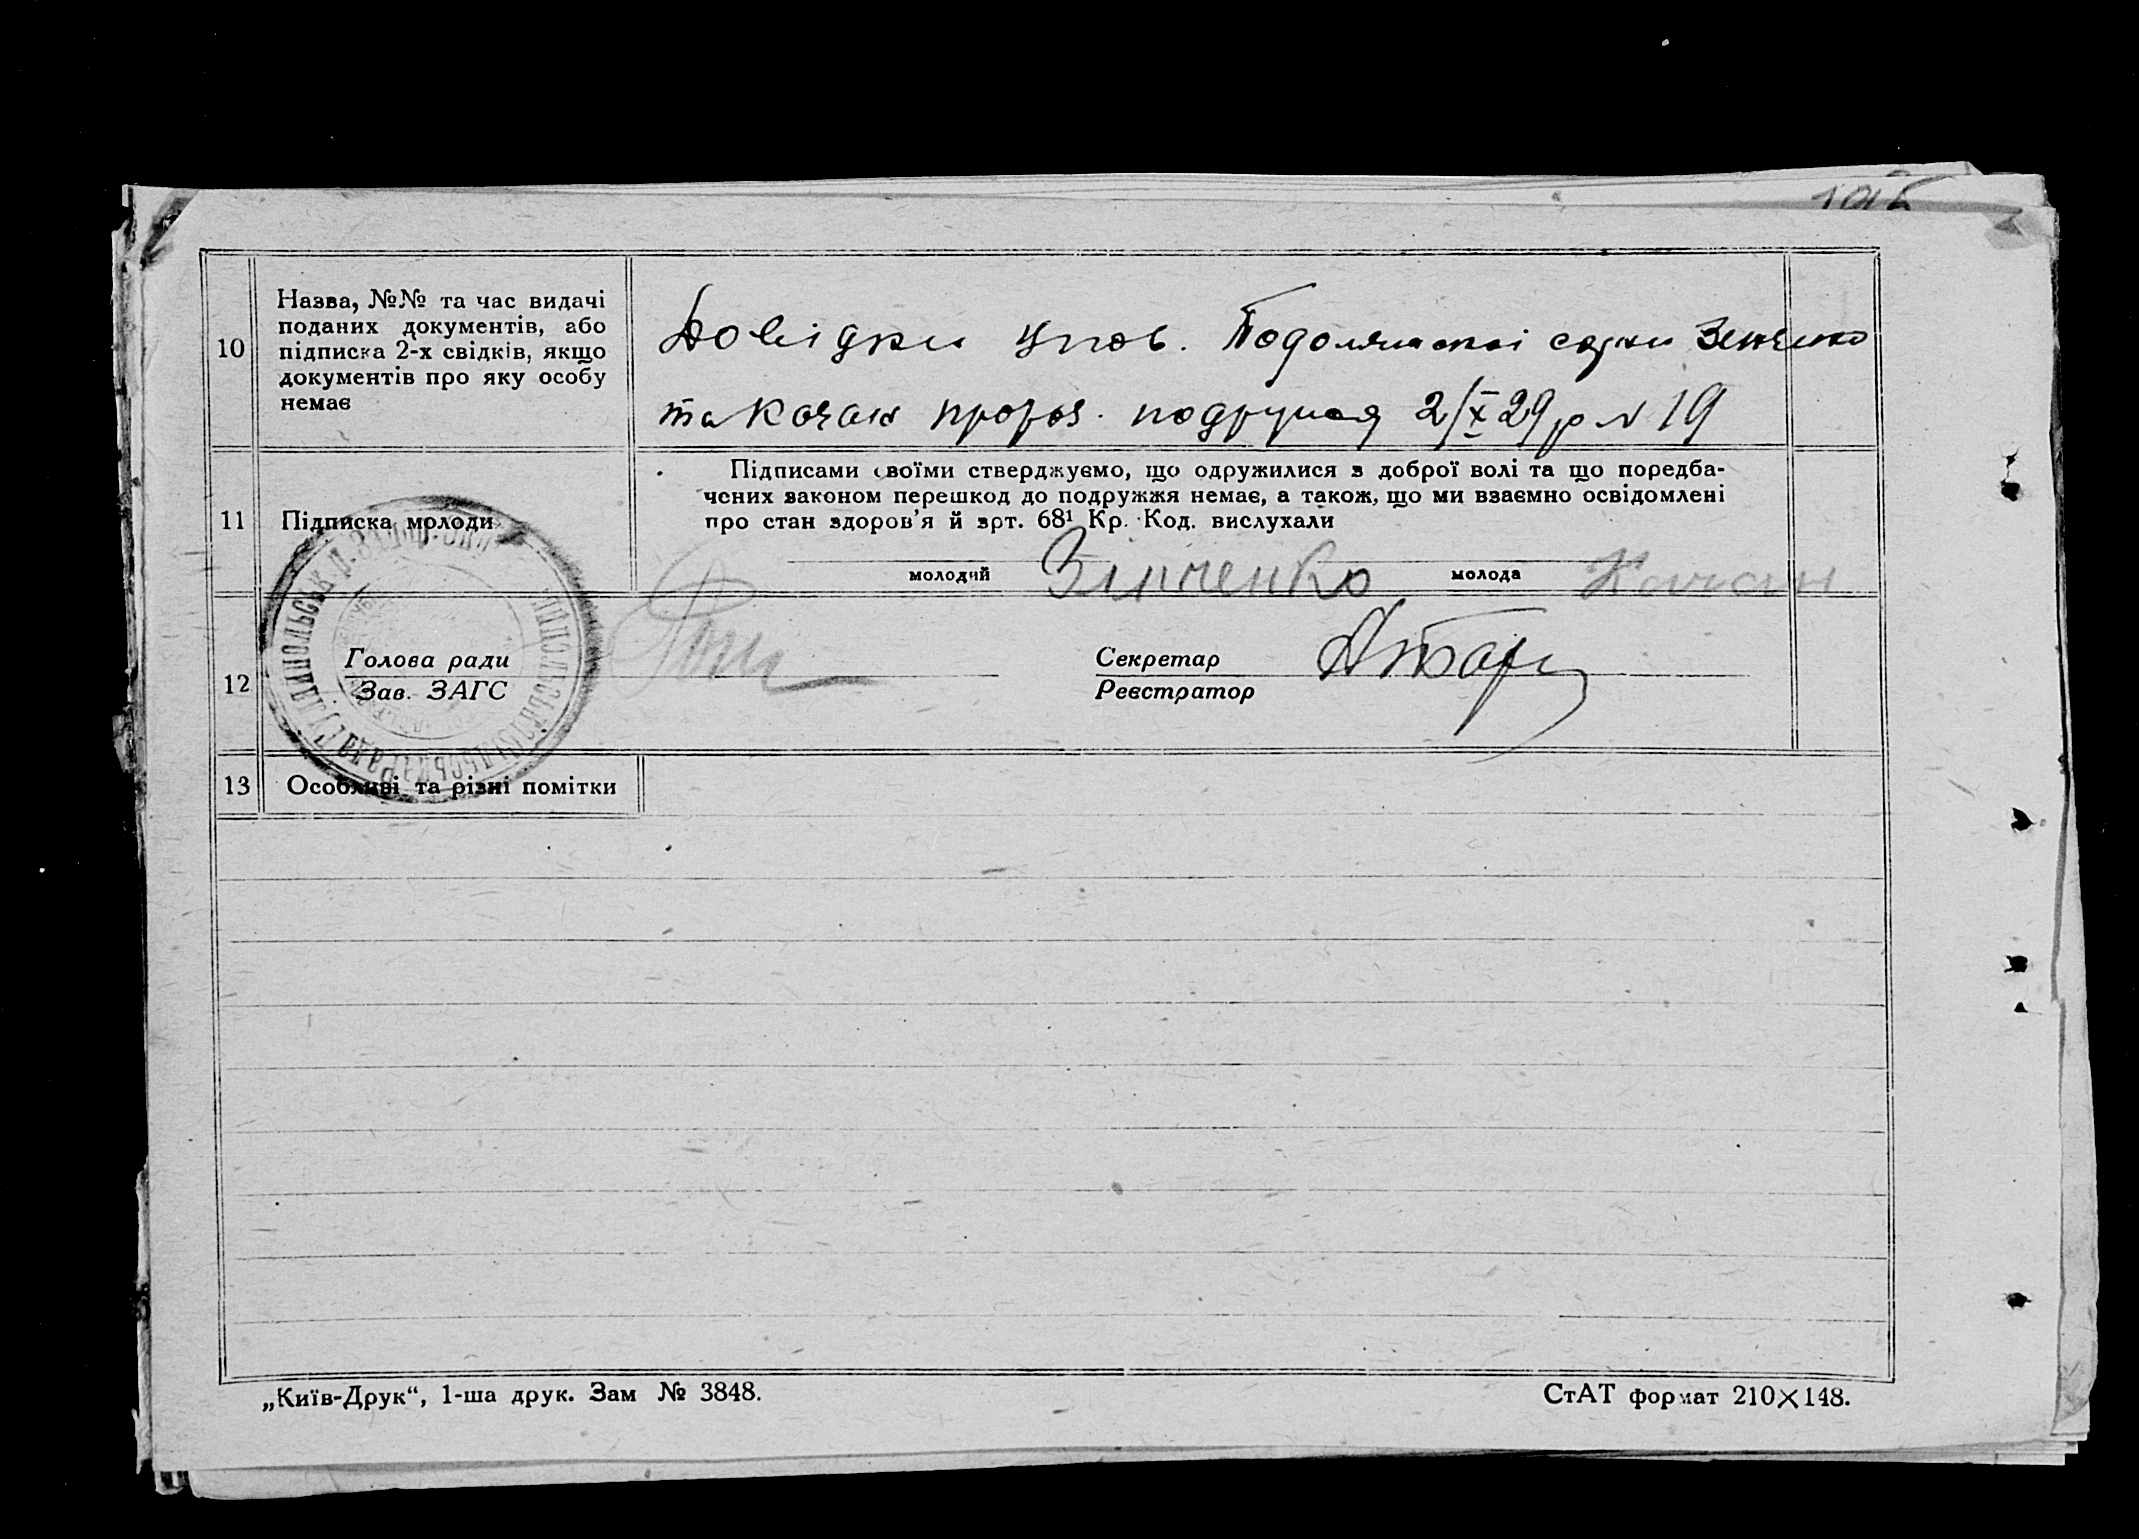 195
10
Назва, №№ та час видачі
поданих документів, або
підписка 2-х свідків, якщо
документів про яку особу
немає
Довідки упов. Подолянської сотки Зенченко
та Качан про роз. подружжя 2/X 29 р N 19
11
Підписка молоди
Підписами своїми стверджуємо, що одружилися з доброї волі та що поредба-
чених законом перешкод до подружжя немає, а також, що ми взаємно освідомлені
про стан здоров'я й арт. 68¹ Кр. Код. вислухали
молодий Зінченко молода Качан
12
Голова ради
Зав. ЗАГС
Секретар
Реєстратор
13
Особливі та різні помітки
„Київ-Друк“, 1-ша друк. Зам № 3848.
СтАТ формат 210×148.